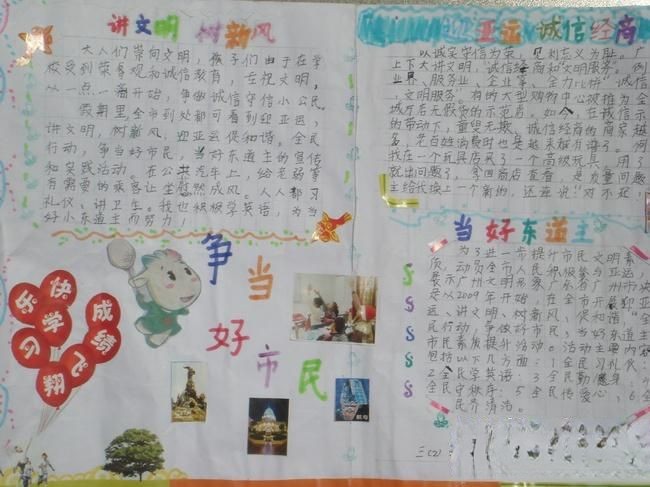 讲文明 树新风
大人们崇尚文明，孩子们由于在学
校受到荣辱观和诚信教育，在祝文明，
以一点一滴开始，争做诚信守信小公民。
假期里全市到处都可看到迎亚运，
讲文明，树新风，迎亚运促和谐。全民
行动，争当好市民，当好东道主的宣传
和实践活动。在公共汽车上，给老弱等
有需要的乘客让坐蔚然成风。人人都习
礼仪、讲卫生。我也积极学英语，为当
好小东道主而努力！
迎亚运 诚信经商
以诚实守信为荣，见利忘义为耻。广
上下大讲文明，诚信经商和文明服务"。例
业界、服务业、企业等，全力比讲"诚信
，文明服务"有的大型购物中心被推为全
城厅店无假货的示范店。如今，在诚信示
的带动下，童叟无欺、诚信经商的商家越
多，老百姓消费时也是越来越有谱了。例
我在一个玩具店买了一个高级玩具，用了
就出问题了，拿回商店查看，是质量问题
主给我换上一个新的，还连说"对不起，
当好东道主
为了进一步提升市民文明素
质，动员全市人民积极参与亚运，
展示广州文明形象，广东省广州市决
定从2009年开始，在全市开展迎亚
运、讲文明、树新风、促和谐"全
民行动，争做好市民，当好东道主
市民素质提升活动。活动主要内容
包括以下几方面：1全民习礼仪；
2全民学英语；3全民勤健身；4
全民守秩序；5全民传爱心；6全
民齐清洁。
争当好市民
快乐学习
成绩飞翔
三(2)